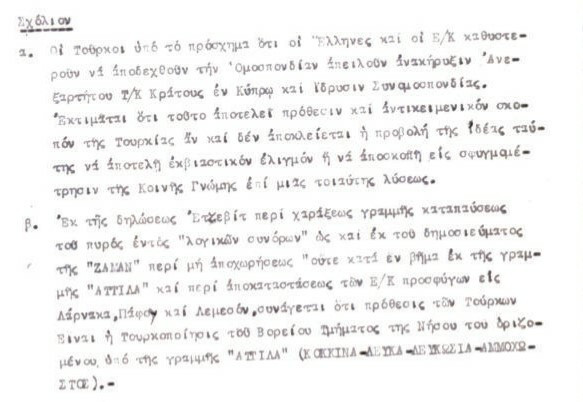 Σχόλιον
α. Οἱ Τοῦρκοι ὑπό τό πρόσχημα ὅτι οἱ Ἕλληνες καί οἱ Ε/Κ καθυστε-
ροῦν νά ἀποδεχθοῦν τήν Ὁμοσπονδίαν ἀπειλοῦν ἀνακήρυξιν Ἀνε-
ξαρτήτου Τ/Κ Κράτους ἐν Κύπρῳ καί ἵδρυσιν Συνομοσπονδίας.
Ἐκτιμᾶται ὅτι τοῦτο ἀποτελεῖ πρόθεσιν καί ἀντικειμενικόν σκο-
πόν τῆς Τουρκίας ἄν καί δέν ἀποκλείεται ἡ προβολή τῆς ἰδέας ταύ-
της νά ἀποτελῇ ἐκβιαστικόν ἐλιγμόν ἤ νά ἀποσκοπῇ εἰς σφυγμομέ-
τρησιν τῆς Κοινῆς Γνώμης ἐπί μιᾶς τοιαύτης λύσεως.
β. Ἐκ τῆς δηλώσεως Ἐτζεβίτ περί χαράξεως γραμμῆς καταπαύσεως
τοῦ πυρός ἐντός "λογικῶν συνόρων" ὡς καί ἐκ τοῦ δημοσιεύματος
τῆς "ΖΑΜΑΝ" περί μή ἀποχωρήσεως "οὔτε κατά ἕν βῆμα ἐκ τῆς γραμ-
μῆς "ΑΤΤΙΛΑ" καί περί ἀποκαταστάσεως τῶν Ε/Κ προσφύγων εἰς
Λάρνακα, Πάφον καί Λεμεσόν, συνάγεται ὅτι πρόθεσις τῶν Τούρκων
Εἶναι ἡ Τουρκοποίησις τοῦ Βορείου Τμήματος τῆς Νήσου τοῦ ὁριζο-
μένου ὑπό τῆς γραμμῆς "ΑΤΤΙΛΑ" (ΚΟΚΚΙΝΑ-ΛΕΥΚΑ-ΛΕΥΚΩΣΙΑ-ΑΜΜΟΧΩ-
ΣΤΟΣ).-